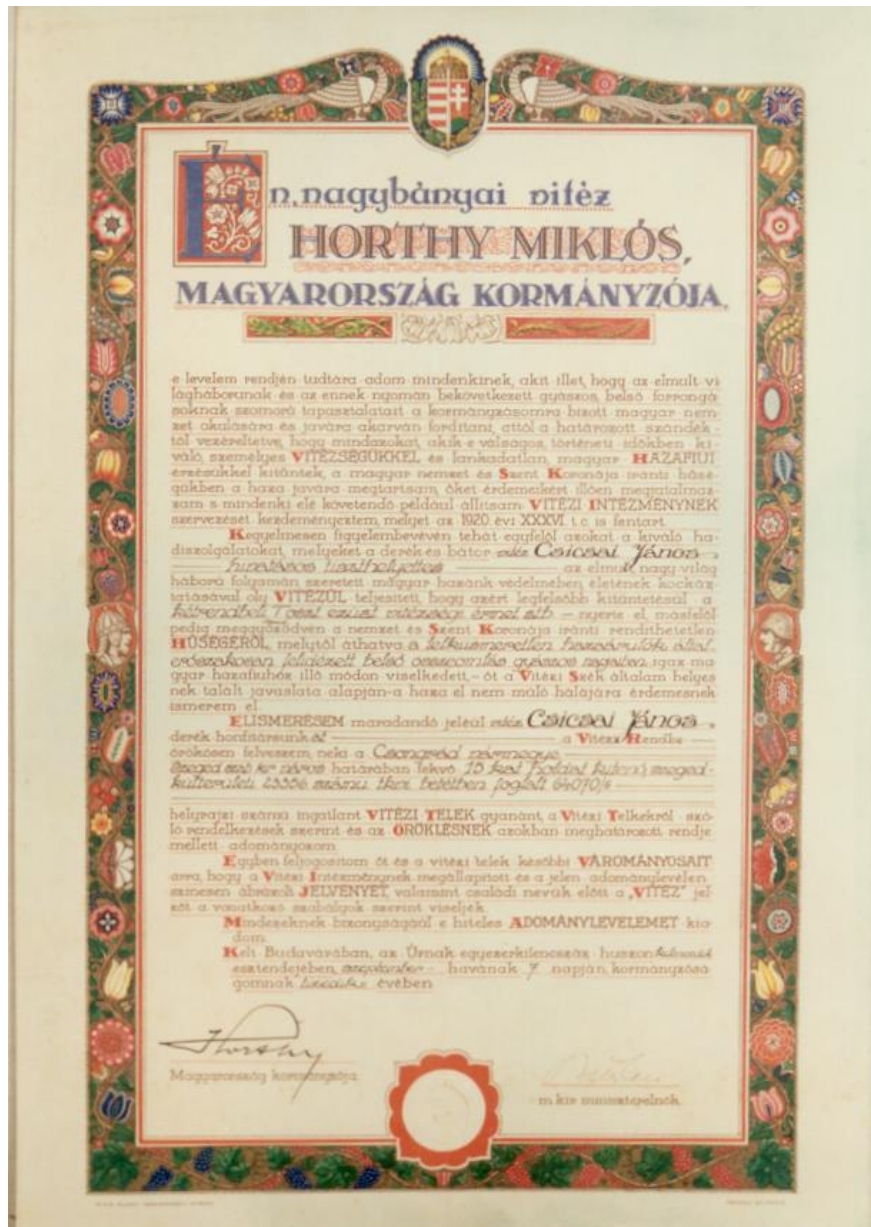 Én, nagybányai vitéz
HORTHY MIKLÓS,
MAGYARORSZÁG KORMÁNYZÓJA,
e levelem rendjén tudtára adom mindenkinek, akit illet, hogy az elmult vi
lágháborunak és az ennek nyomán bekövetkezett gyászos, belső forrongá
soknak szomorú tapasztalatait a kormányzásomra bizott magyar nem-
zet okulására és javára akarván fordítani, attól a határozott szándék-
tól vezéreltetve, hogy mindazokat, akik e válságos, történeti időkben ki-
váló, személyes VITÉZSÉGÜKKEL és lankadatlan, magyar HAZAFIUI
érzésükkel kitüntek, a magyar nemzet és Szent Koronája iránti hűsé-
gükben a haza javára megtartsam, őket érdemeikért illően megjutalmaz-
zam s mindenki elé követendő például állitsam VITÉZI INTÉZMÉNYNEK
szervezését kezdeményeztem, melyet az 1920. évi XXXVI. t. c. is fentart.
Kegyelmesen figyelembevévén tehát egyfelől azokat a kiváló ha-
diszolgálatokat, melyeket a derék és bátor vitéz Csicsai János
hivatásos tiszthelyettes az elmult nagy világ
háború folyamán szeretett magyar hazánk védelmében, életének kockáz-
tatásával oly VITÉZÜL teljesített, hogy azért legfelsőbb kitüntetésül a
kétrendbeli I. oszt. ezüst vitézségi érmet stb. nyerte el, másfelől
pedig meggyőződvén a nemzet és Szent Koronája iránti rendíthetetlen
HŰSÉGÉRŐL, melytől áthatva a lelkiismeretlen hazaárulók által
erőszakosan felidézett belső összeomlás gyászos napjaiban, igaz ma-
gyar hazafiuhoz illő módon viselkedett, - őt a Vitézi Szék általam helyes
nek talált javaslata alapján - a haza el nem muló hálájára érdemesnek
ismerem el.
ELISMERÉSEM maradandó jeléül vitéz Csicsai János
derék honfitársunkat a Vitézi Rendbe
örökösen felveszem, neki a Csongrád vármegye,
Szeged szab. kir. város határában fekvő 15 kat. holdat kitevő szeged-
külterületi 23556 számu tkvi betétben foglalt
helyrajzi számu ingatlant VITÉZI TELEK gyanánt, a Vitézi Telkekről szó-
ló rendelkezések szerint és az ÖRÖKLÉSNEK azokban meghatározott rendje
mellett adományozom.
Egyben feljogosítom őt és a vitézi telek későbbi VÁROMÁNYOSAIT
arra, hogy a Vitézi Intézménynek megállapított és a jelen adománylevélen
szinesen ábrázolt JELVÉNYÉT, valamint családi nevük előtt a „VITÉZ" jel-
zőt a vonatkozó szabályok szerint viseljék.
Mindezeknek bizonyságáúl e hiteles ADOMÁNYLEVELEMET kia-
dom.
Kelt Budavárában, az Úrnak egyezerkilencszáz huszon
esztendejében, szeptember havának 7. napján, kormányzósá-
gomnak tizedik évében.
Horthy
Magyarország kormányzója.
m. kir. miniszterelnök.